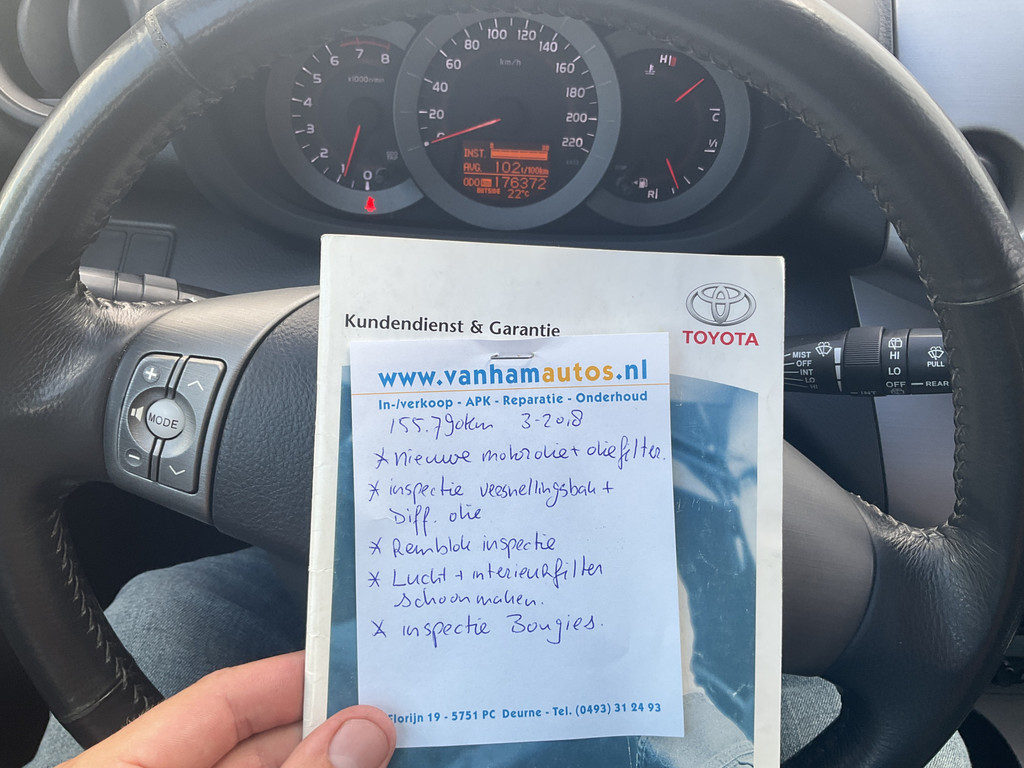 8
7
6
5
4
3
2
1
0
x1000r/min
100
120
80
140
60
km/h
160
40
180
20
200
220
INST.
AVG. 10.2 L/100km
ODO km 176372
OUTSIDE 22°C
H
C
1/1
R
MODE
Kundendienst & Garantie
TOYOTA
www.vanhamautos.nl
In-/verkoop - APK - Reparatie - Onderhoud
155.790km 3-2018
* Nieuwe motorolie + oliefilter.
* inspectie versnellingsbak +
Diff. olie
* Remblok inspectie
* Lucht + interieurfilter
schoonmaken.
* inspectie Bougies.
Florijn 19 - 5751 PC Deurne - Tel. (0493) 31 24 93
MIST
OFF
INT
LO
HI
HI
LO
OFF
INT
PULL
REAR